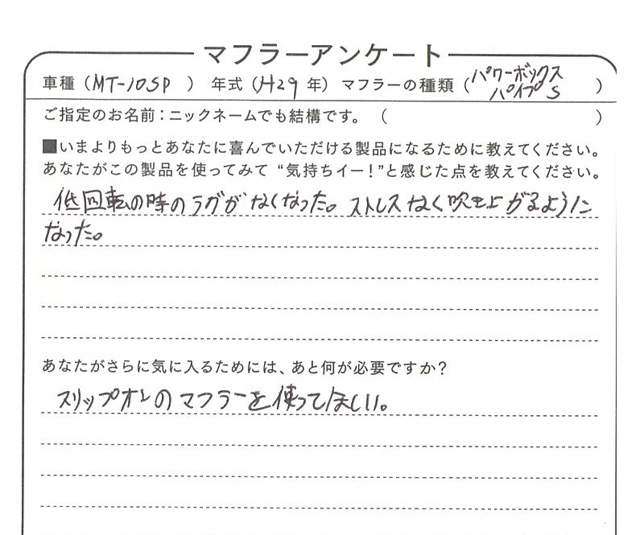 マフラーアンケート
車種（MT-10SP） 年式（H29年） マフラーの種類（パワーボックスパイプS）
ご指定のお名前：ニックネームでも結構です。（ ）
■いまよりもっとあなたに喜んでいただける製品になるために教えてください。
あなたがこの製品を使ってみて“気持ちイー！”と感じた点を教えてください。
低回転の時のラグがなくなった。ストレスなく吹き上がるように
なった。
あなたがさらに気に入るためには、あと何が必要ですか？
スリップオンのマフラーを使ってほしい。